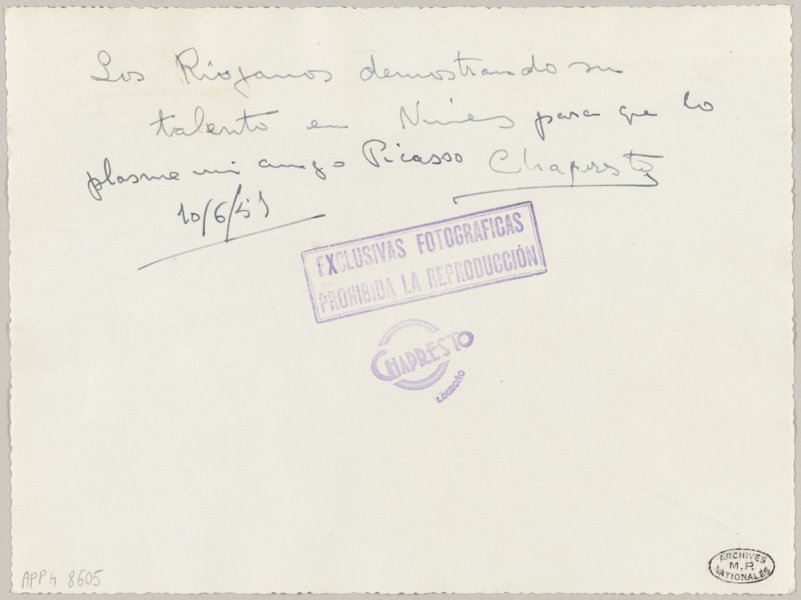 Los Riojanos demostrando su
talento en Nimes para que lo
plasme mi amigo Picasso Chapresto
10/6/51
EXCLUSIVAS FOTOGRAFICAS
PROHIBIDA LA REPRODUCCIÓN
CHAPRESTO
LOGROÑO
APPh 8605
ARCHIVES
M.P.
NATIONALES